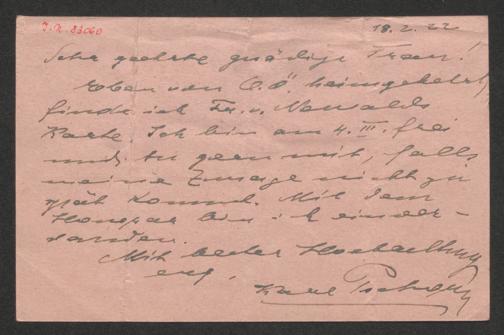 J.N. 83060
18.2.22
Sehr geehrte gnädige Frau!
Eben von O.Ö. heimgekehrt
finde ich Fr. v. Newalds
Karte. Ich bin am 4. III. frei
und tu gern mit, falls
meine Zusage nicht zu
spät kommt. Mit dem
Honorar bin ich einver-
standen.
Mit bester Hochachtung
erg.
Karl